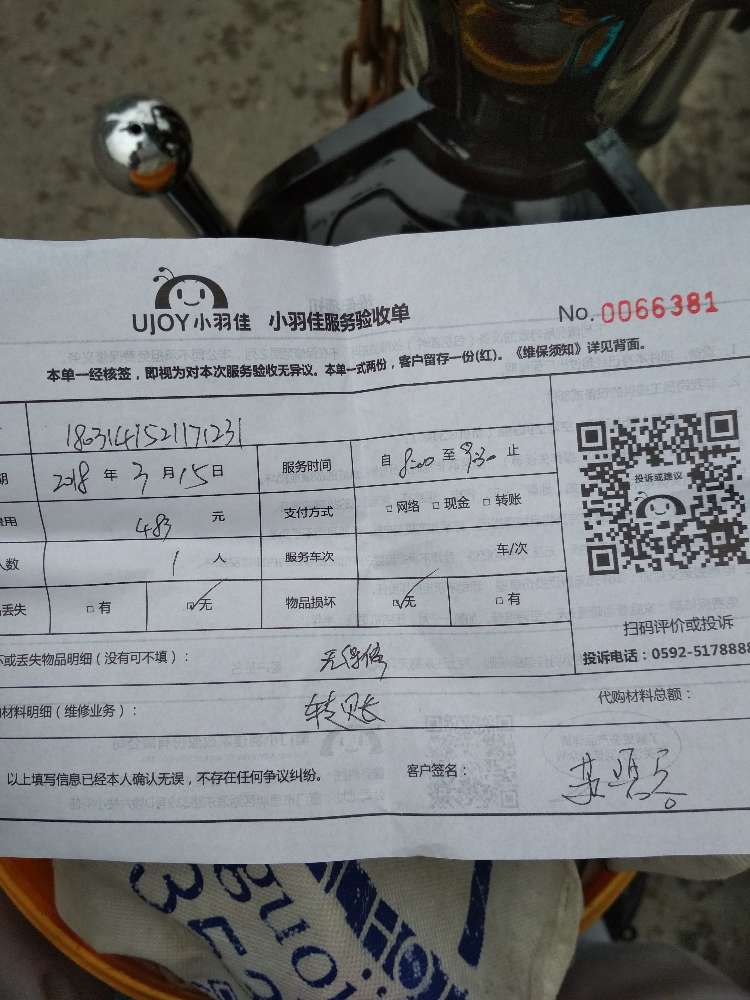 UJOY小羽佳 小羽佳服务验收单 No. 0066381
本单一经核签，即视为对本次服务验收无异议。本单一式两份，客户留存一份(红)。《维保须知》详见背面。
1803141521171231
期 2018 年 3 月 15 日 服务时间 自 8:00 至 9:30 止
费用 483 元 支付方式 □网络 □现金 □转账
人数 1 人 服务车次 车/次
丢失 □有 ☑无 物品损坏 ☑无 □有
投诉或建议
扫码评价或投诉
投诉电话：0592-5178888
坏或丢失物品明细（没有可不填）：
材料明细（维修业务）： 转账
代购材料总额：
以上填写信息已经本人确认无误，不存在任何争议纠纷。 客户签名：